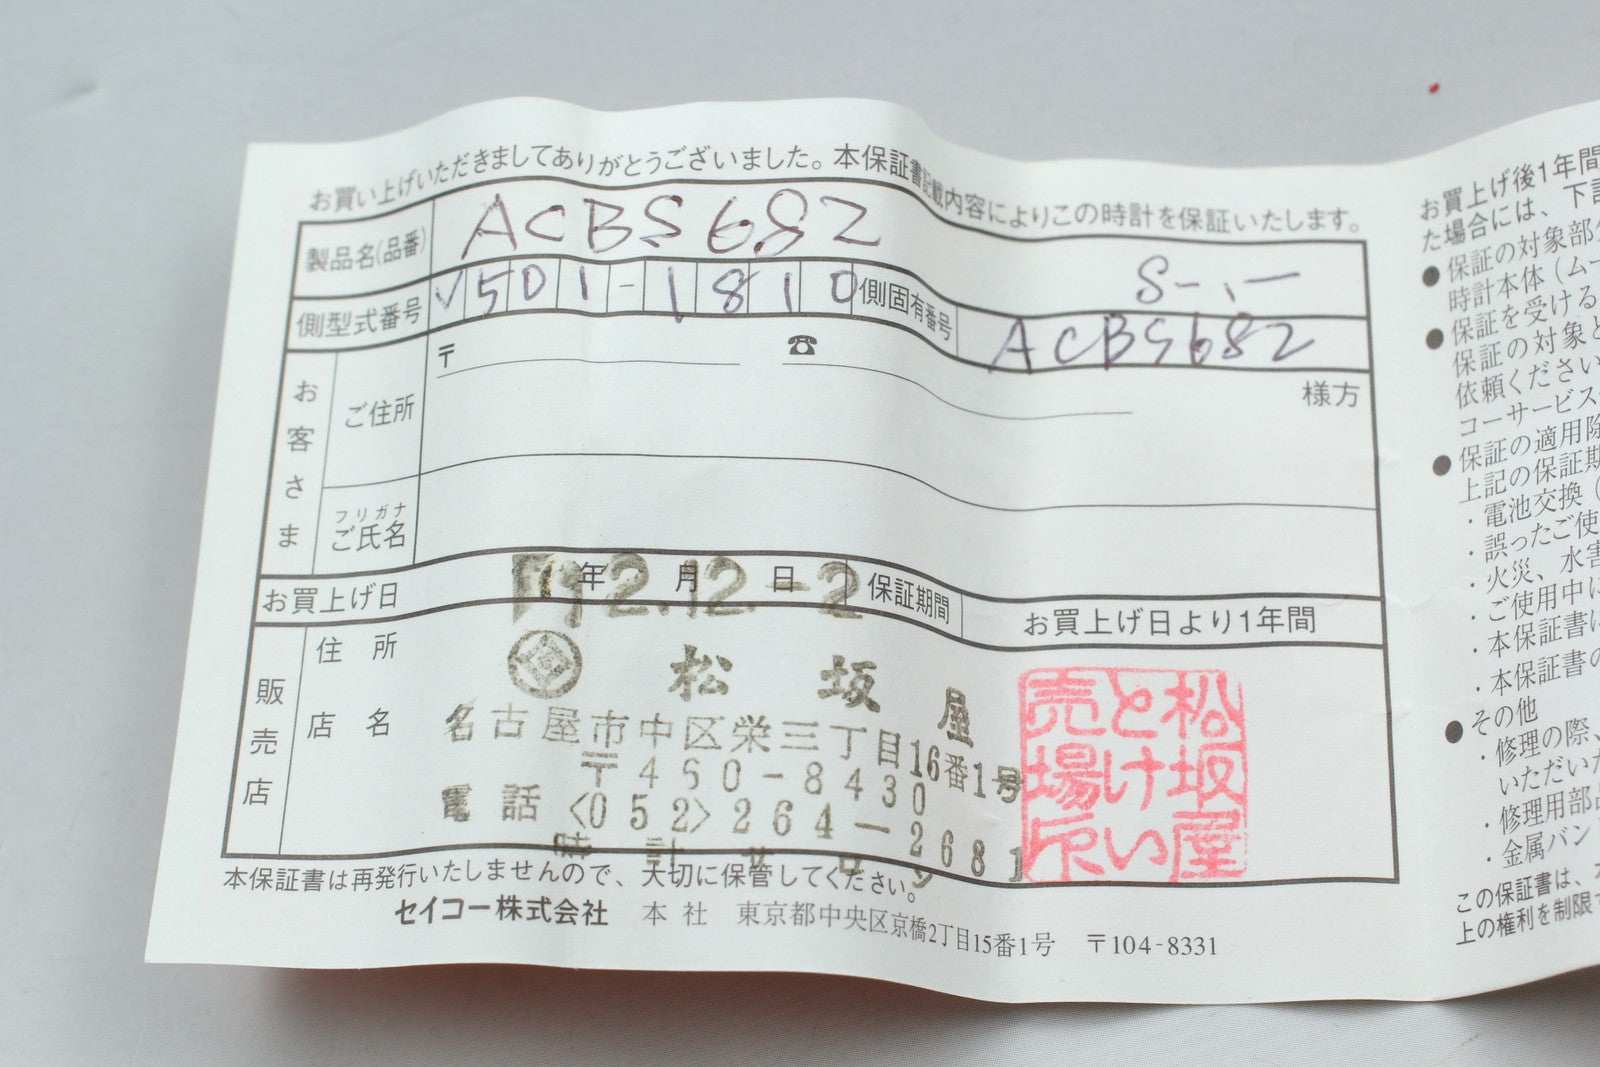 お買い上げいただきましてありがとうございました。本保証書記載内容によりこの時計を保証いたします。
製品名(品番) ACBS682 S-.-
側型式番号 V501-1810 側固有番号 ACBS682
お客さま
ご住所 〒 ☎ 様方
フリガナ
ご氏名
お買上げ日 年 月 日 12.12.-2 保証期間 お買上げ日より1年間
販売店
住所
店名
松坂屋
名古屋市中区栄三丁目16番1号
〒460-8430
電話〈052〉264-2681
時計サロン
松坂屋
とけい
売場
本保証書は再発行いたしませんので、大切に保管してください。
セイコー株式会社 本社 東京都中央区京橋2丁目15番1号 〒104-8331
お買上げ後1年間
た場合には、下記
●保証の対象部分
時計本体(ムー
●保証を受ける
保証の対象と
依頼ください
コーサービス
●保証の適用除
上記の保証期
・電池交換(
・誤ったご使
・火災、水害
・ご使用中に
・本保証書に
・本保証書の
●その他
・修理の際、
いただいた
・修理用部品
・金属バン
この保証書は、本
上の権利を制限す